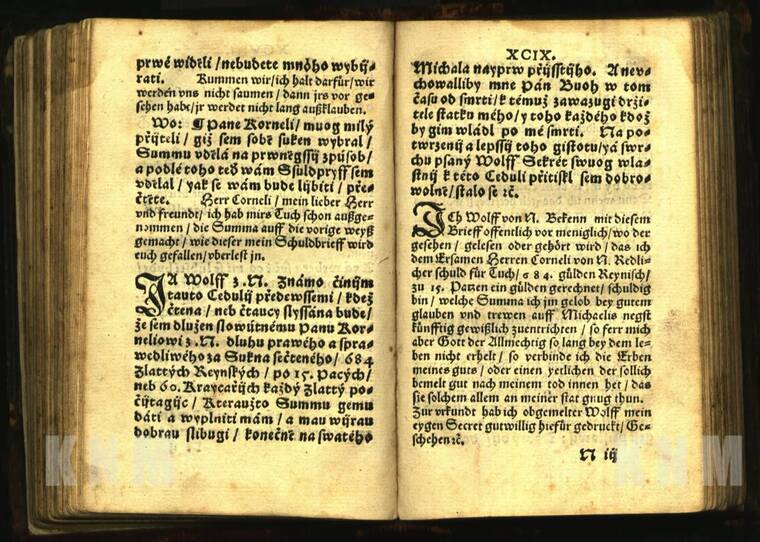 prwé widěli / nebudete mnoho wybij-
rati. Kummen wir / ich halt darfür / wir
werden vns nicht saumen / dann jrs vor ge-
sehen habt / jr werdet nicht lang außklauben.
Wo: Pane Korneli / muog milý
přijteli / giž sem sobě suken wybral /
Summu vdělal na prwněgssij způsob /
a podlé toho teď wám Ssuldpryff sem
vdělal / yak se wám bude lijbiti / pře-
čtěte. Herr Corneli / mein lieber Herr
vnd freundt / ich hab mirs Tuch schon außge-
nommen / die Summa auff die vorige weyß
gemacht / wie dieser mein Schuldbrieff wird
euch gefallen / vberlest jn.
JA Wolff z N. Známo činijm
tauto Cedulij předewssemi / kdež
čtena / neb čtaucy slyssána bude /
že sem dlužen slowútnému Panu Kor-
neliowi z N. dluhu prawého a spra-
wedliwého za Sukna sečteného / 684
Zlattých Reynských / po 15. Pacých /
neb 60. Kraycařijch každý Zlattý po-
čijtagijc / Kteraužto Summu gemu
dáti a wyplniti mám / a mau wijrau
dobrau slibugi / konečně na swatého
XCIX.
Michala nayprw přijsstijho. A nev-
chowalliby mne Pán Buoh w tom
času od smrti / k témuž zawazugi drži-
tele statku mého / y toho každého kdož
by gim wládl po mé smrti. Na po-
twrzenij a lepssij toho gistotu / yá swr-
chu psaný Wolff Sekrét swuog wla-
stnij k této Ceduli přitiskl sem dobro-
wolně / stalo se ꝛc.
Ich Wolff von N. Bekenn mit diesem
Brieff offentlich vor meniglich / wo der
gesehen / gelesen oder gehört wird / das ich
dem Ersamen Herren Corneli von N. Redli-
cher schuld für Tuch / 684. gülden Reynisch /
zu 15. Patzen ein gülden gerechnet / schuldig
bin / welche Summa ich jm gelob bey gutem
glauben vnd trewen auff Michaelis negst
künfftig gewißlich zuentrichten / so ferr mich
aber Gott der Allmechtig so lang bey dem le-
ben nicht erhelt / so verbinde ich die Erben
meines guts / oder einen yetlichen der sollich
bemelt gut nach meinem tod innen het / das
sie solchem allem an meiner stat gnug thun.
Zur vrkundt hab ich obgemelter Wolff mein
eygen Secret gutwillig hiefür gedruckt / Ge-
schehen ꝛc.
N iij
KNM
KNM